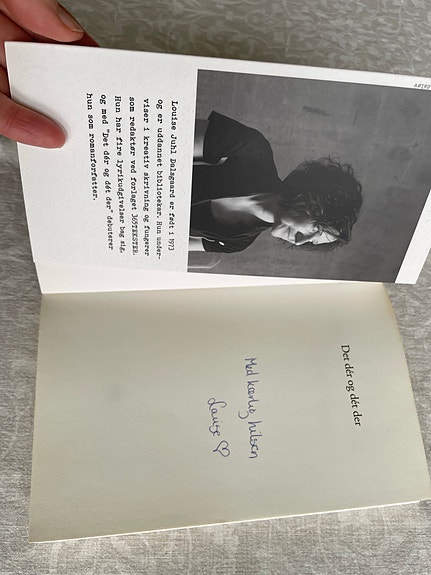 Louise Juhl Dalsgaard er født i 1973
og er uddannet bibliotekar. Hun under-
viser i kreativ skrivning og fungerer
som redaktør ved forlaget 365TEKSTER.
Hun har fire lyrikudgivelser bag sig,
og med "Det dér og dét der" debuterer
hun som romanforfatter.
Det dér og dét der
Med kærlig hilsen
Louise ♡